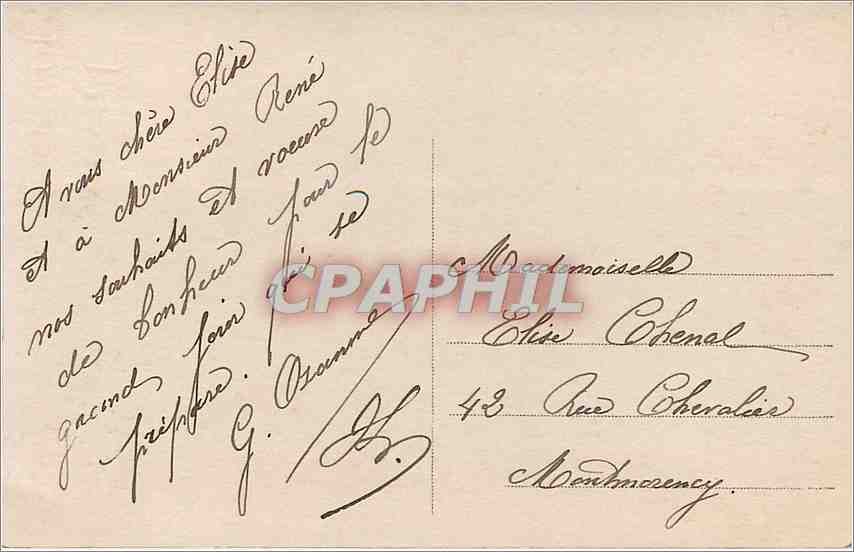 A vous chère Elise
et à Monsieur René
nos souhaits et voeux
de bonheur pour le
grand jour qui se
prépare.
G. Osanne
Mademoiselle
Elise Chenal
42 Rue Chevalier
Montmorency.
CPAPHIL